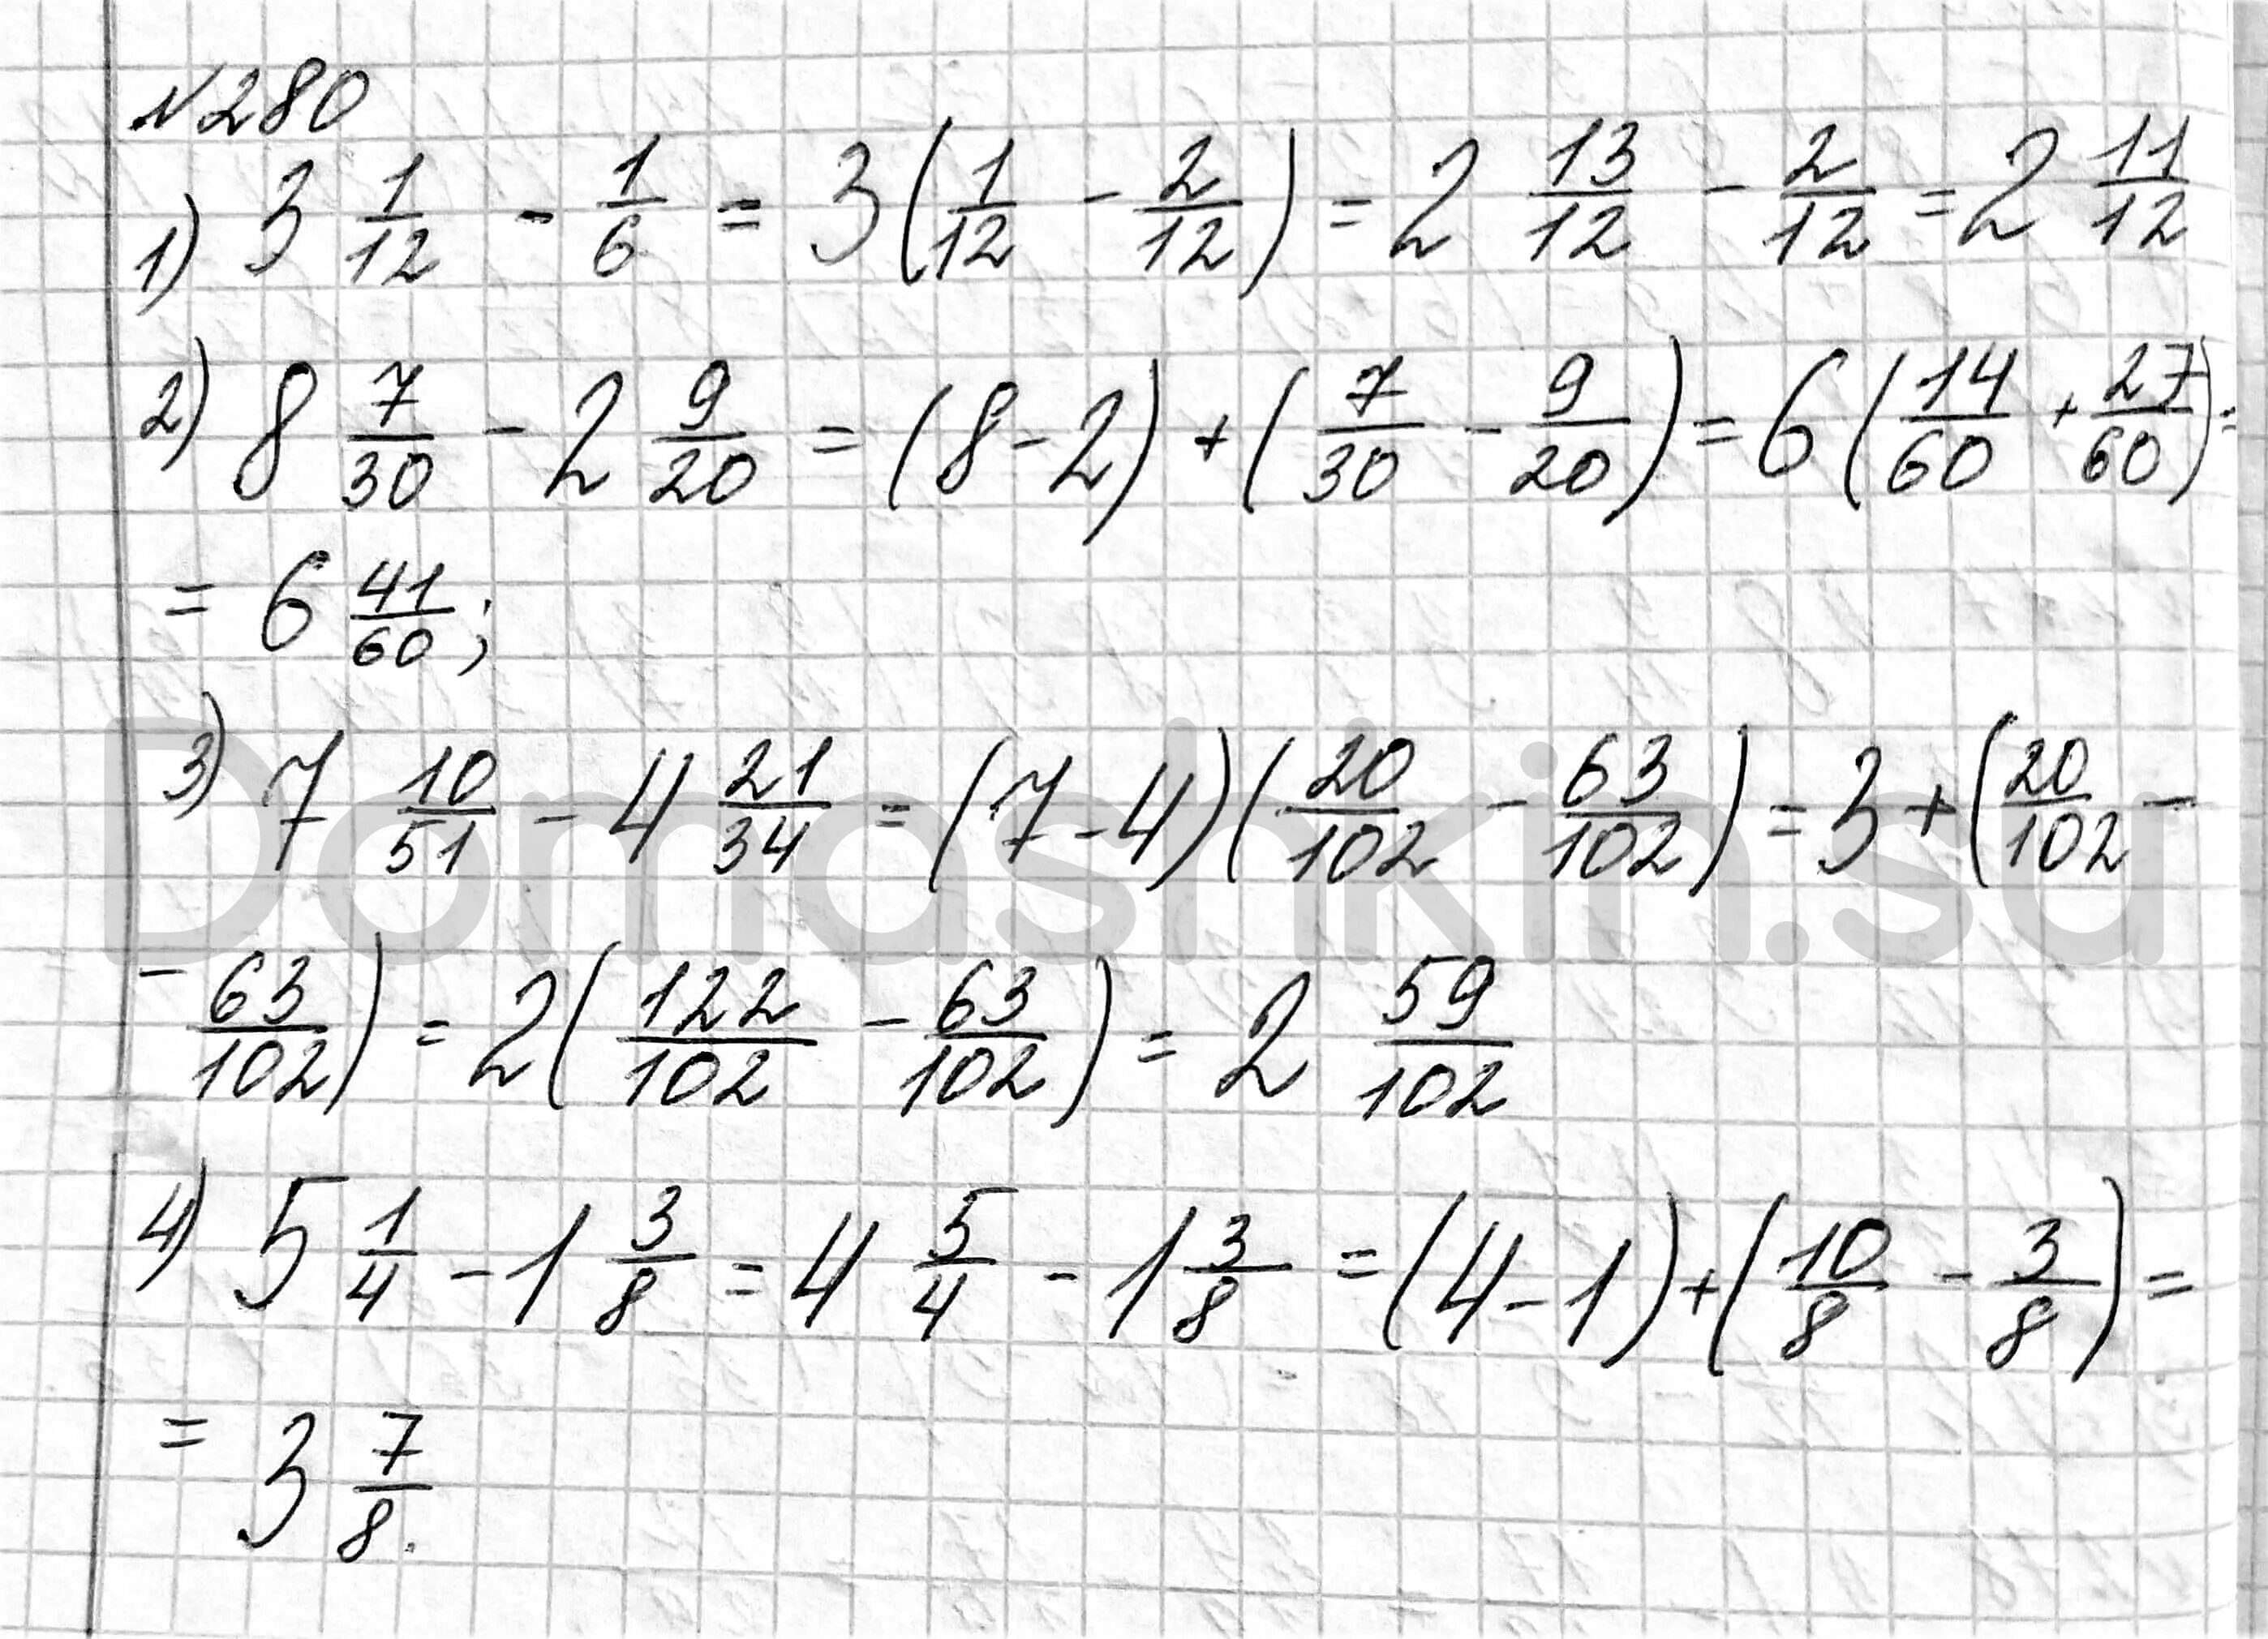 №280
1) 3 1/12 - 1/6 = 3(1/12 - 2/12) = 2 13/12 - 2/12 = 2 11/12
2) 8 7/30 - 2 9/20 = (8-2) + (7/30 - 9/20) = 6(14/60 + 27/60) =
= 6 41/60;
3) 7 10/51 - 4 21/34 = (7-4)(20/102 - 63/102) = 3 + (20/102 -
- 63/102) = 2(122/102 - 63/102) = 2 59/102
4) 5 1/4 - 1 3/8 = 4 5/4 - 1 3/8 = (4-1) + (10/8 - 3/8) =
= 3 7/8.
Domashkin.su